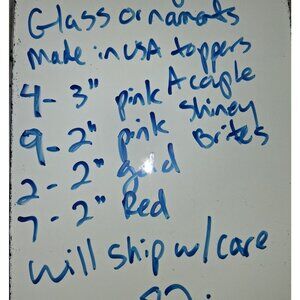 Glass ornaments
made in USA toppers
4 - 3" pink A couple
9 - 2" pink Shiney
2 - 2" gold Brites
7 - 2" Red
Will ship w/care